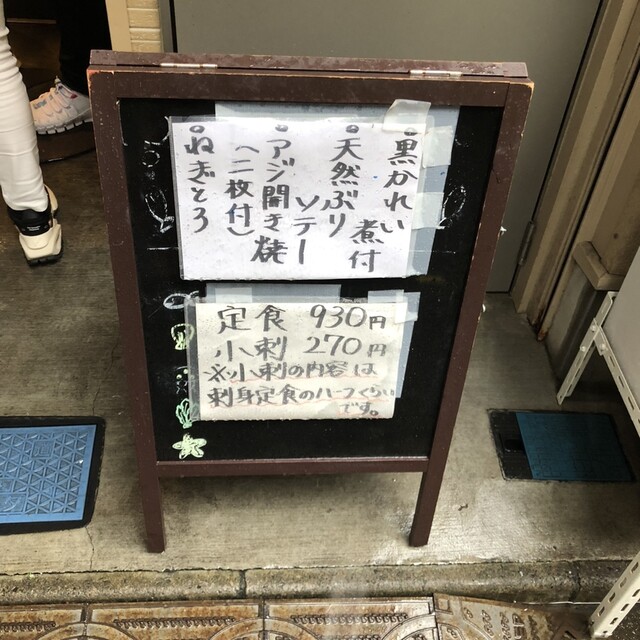 ・黒かれい
煮付
・天然ぶり
ソテー
・アジ開き焼
(二枚付)
・ねぎとろ
定食 930円
小刺 270円
※小刺の内容は
刺身定食のハーフくらい
です。